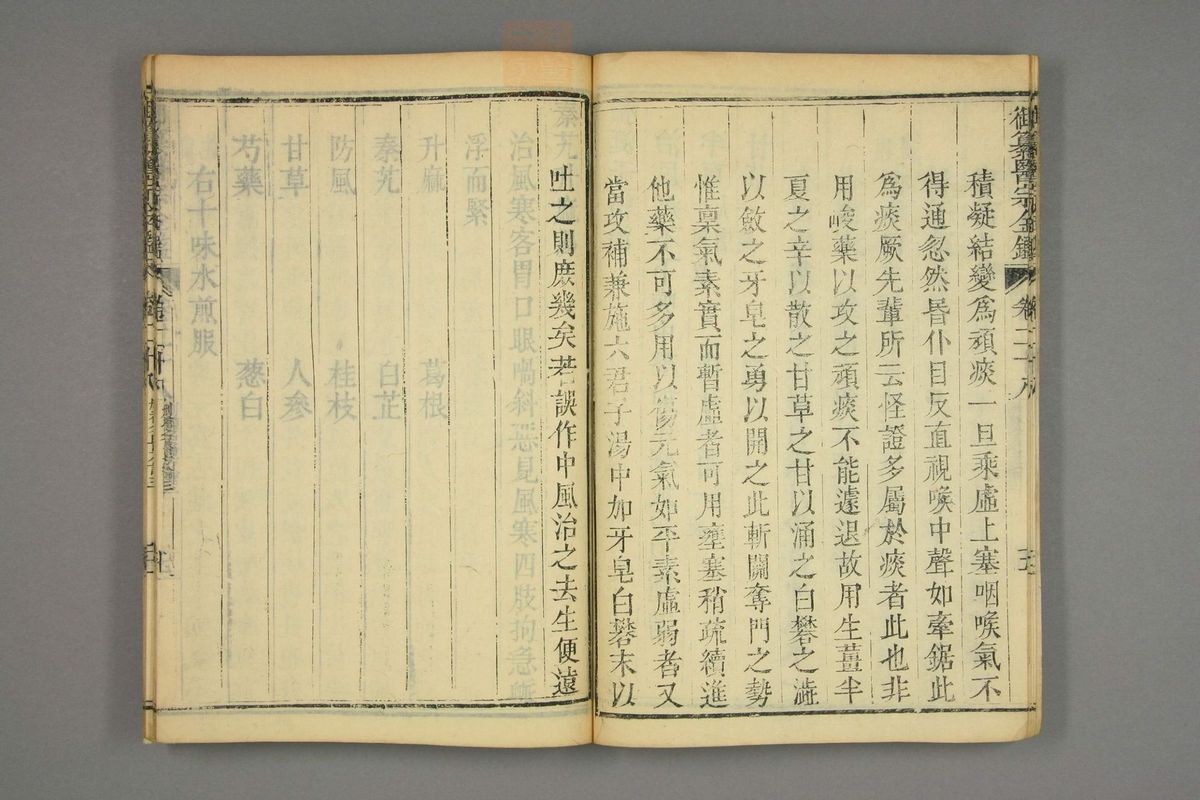 御纂醫宗金鑑 卷二十八
積凝結變爲頑痰一旦乘虛上塞咽喉氣不
得通忽然昏仆目反直視喉中聲如牽鋸此
爲痰厥先輩所云怪證多屬於痰者此也非
用峻藥以攻之頑痰不能遽退故用生薑半
夏之辛以散之甘草之甘以涌之白礬之澁
以斂之牙皂之勇以開之此斬關奪門之勢
惟稟氣素實而暫虛者可用壅塞稍疏續進
他藥不可多用以傷元氣如平素虛弱者又
當攻補兼施六君子湯中加牙皂白礬末以
吐之則庶幾矣若誤作中風治之去生便遠
秦艽
治風寒客胃口眼喎斜惡見風寒四肢拘急
浮而緊
升麻 葛根
秦艽 白芷
防風 桂枝
甘草 人參
芍藥 葱白
右十味水煎服